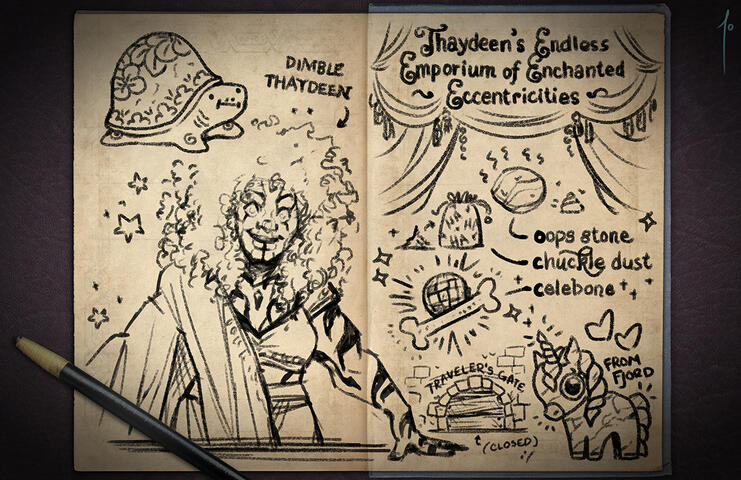 DIMBLE
THAYDEEN
Thaydeen's Endless
Emporium of Enchanted
Eccentricities
HA HA
HA HA
oops stone
chuckle dust
celebone
FROM
FJORD
TRAVELER'S GATE
(CLOSED)